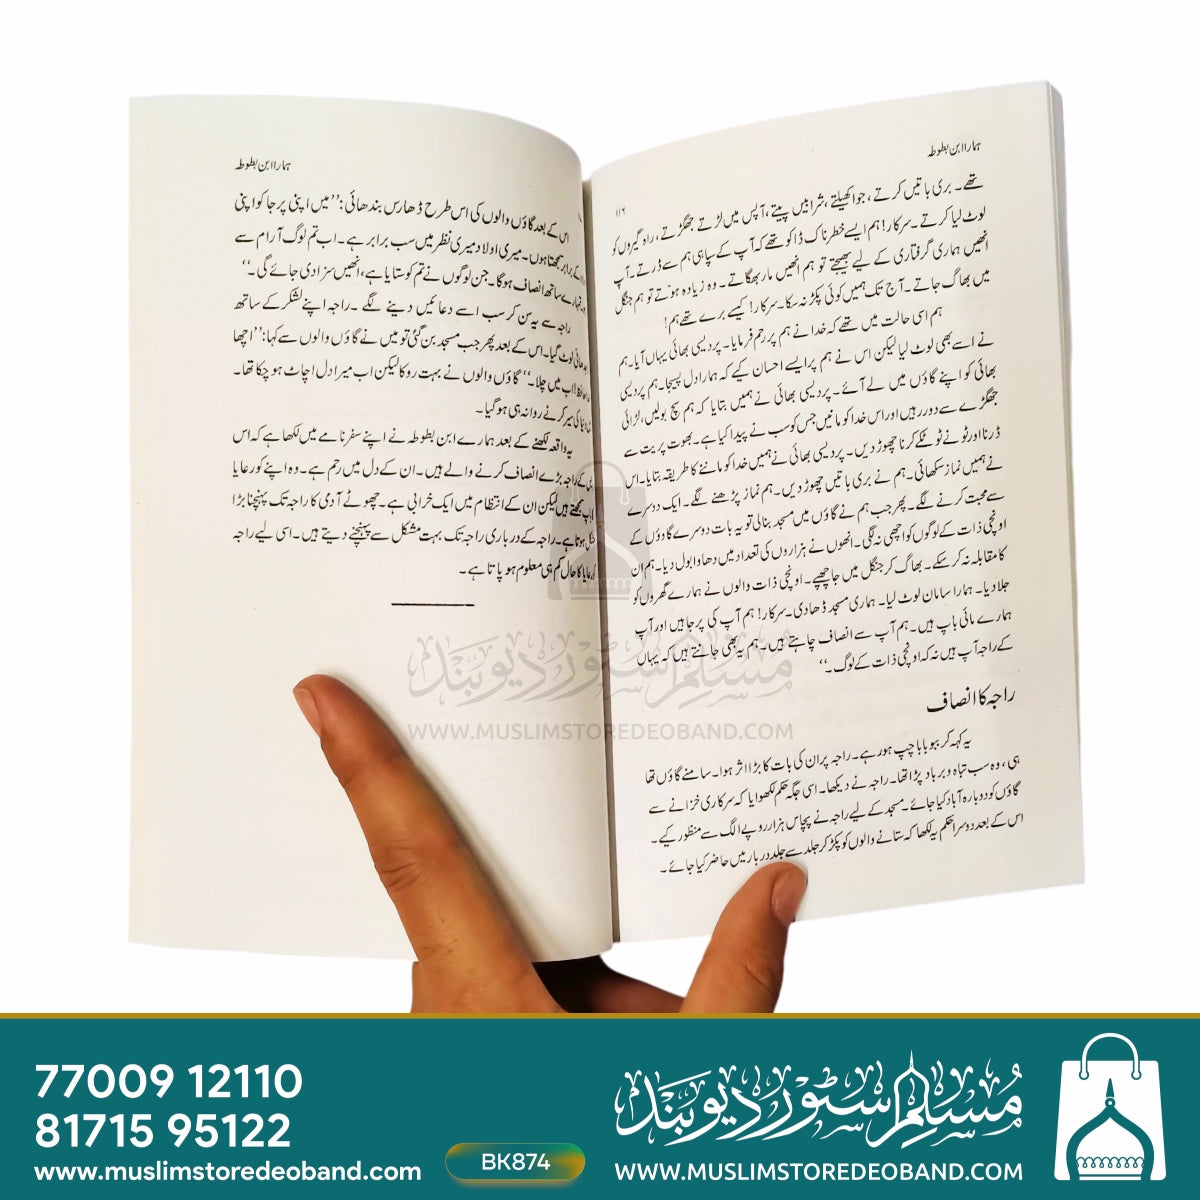 ہمارا ابن بطوطہ
۱۱۶
تھے۔ بری باتیں کرتے، جوا کھیلتے، شرابیں پیتے، آپس میں لڑتے جھگڑتے، راہ گیروں کو
لوٹ لیا کرتے۔ سرکار! ہم ایسے خطرناک ڈاکو تھے کہ آپ کے سپاہی ہم سے ڈرتے۔ آپ
انھیں ہماری گرفتاری کے لیے بھیجتے تو ہم انھیں مار بھگاتے۔ وہ زیادہ ہوتے تو ہم جنگل
میں بھاگ جاتے۔ آج تک ہمیں کوئی پکڑ نہ سکا۔ سرکار! کیسے برے تھے ہم!
ہم اسی حالت میں تھے کہ خدا نے ہم پر رحم فرمایا۔ پردیسی بھائی یہاں آیا۔ ہم
نے اسے بھی لوٹ لیا لیکن اس نے ہم پر ایسے احسان کیے کہ ہمارا دل پسیجا۔ ہم پردیسی
بھائی کو اپنے گاؤں میں لے آئے۔ پردیسی بھائی نے ہمیں بتایا کہ ہم سچ بولیں، لڑائی
جھگڑے سے دور رہیں اور اس خدا کو مانیں جس کو سب نے پیدا کیا ہے۔ بھوت پریت سے
ڈرنا اور ٹونے ٹوٹکے کرنا چھوڑ دیں۔ پردیسی بھائی نے ہمیں خدا کو ماننے کا طریقہ بتایا۔ اس
نے ہمیں نماز سکھائی۔ ہم نے بری باتیں چھوڑ دیں۔ ہم نماز پڑھنے لگے۔ ایک دوسرے
سے محبت کرنے لگے۔ پھر جب ہم نے گاؤں میں مسجد بنالی تو یہ بات دوسرے گاؤوں کے
اونچی ذات کے لوگوں کو اچھی نہ لگی۔ انھوں نے ہزاروں کی تعداد میں دھاوا بول دیا۔ ہم ان
کا مقابلہ نہ کرسکے۔ بھاگ کر جنگل میں جا چھپے۔ اونچی ذات والوں نے ہمارے گھروں کو
جلا دیا۔ ہمارا سامان لوٹ لیا۔ ہماری مسجد ڈھا دی۔ سرکار! ہم آپ کی پرجا ہیں اور آپ
ہمارے مائی باپ ہیں۔ ہم آپ سے انصاف چاہتے ہیں۔ ہم یہ بھی جانتے ہیں کہ یہاں
کے راجہ آپ ہیں نہ کہ اونچی ذات کے لوگ۔‘‘
راجہ کا انصاف
یہ کہہ کر ببو بابا چپ ہو رہے۔ راجہ پر ان کی بات کا بڑا اثر ہوا۔ سامنے گاؤں تھا
ہی، وہ سب تباہ و برباد پڑا تھا۔ راجہ نے دیکھا۔ اسی جگہ حکم لکھوایا کہ سرکاری خزانے سے
گاؤں کو دوبارہ آباد کیا جائے۔ مسجد کے لیے راجہ نے پچاس ہزار روپے الگ سے منظور کیے۔
اس کے بعد دوسرا حکم یہ لکھا کہ ستانے والوں کو پکڑ کر جلد سے جلد دربار میں حاضر کیا جائے۔
ہمارا ابن بطوطہ
اس کے بعد گاؤں والوں کی اس طرح ڈھارس بندھائی: ’’میں اپنی پرجا کو اپنی
کے برابر سمجھتا ہوں۔ میری اولاد میری نظر میں سب برابر ہے۔ اب تم لوگ آرام سے
تمہارے ساتھ انصاف ہوگا۔ جن لوگوں نے تم کو ستایا ہے، انھیں سزا دی جائے گی۔‘‘
راجہ سے یہ سن کر سب اسے دعائیں دینے لگے۔ راجہ اپنے لشکر کے ساتھ
لوٹ گیا۔ اس کے بعد پھر جب مسجد بن گئی تو میں نے گاؤں والوں سے کہا: ’’اچھا
اب میں چلا۔‘‘ گاؤں والوں نے بہت روکا لیکن اب میرا دل اچاٹ ہو چکا تھا۔
دنیا کی سیر کرنے روانہ ہی ہو گیا۔
یہ واقعہ لکھنے کے بعد ہمارے ابن بطوطہ نے اپنے سفر نامے میں لکھا ہے کہ اس
کے راجہ بڑے انصاف کرنے والے ہیں۔ ان کے دل میں رحم ہے۔ وہ اپنے کو رعایا
سمجھتے ہیں لیکن ان کے انتظام میں ایک خرابی ہے۔ چھوٹے آدمی کا راجہ تک پہنچنا بڑا
ہوتا ہے۔ راجہ کے درباری راجہ تک بہت مشکل سے پہنچنے دیتے ہیں۔ اسی لیے راجہ
رعایا کا حال کم ہی معلوم ہو پاتا ہے۔
مسلم سٹور دیوبند
WWW.MUSLIMSTOREDEOBAND.COM
77009 12110
81715 95122
www.muslimstoredeoband.com
BK874
مسلم سٹور دیوبند
WWW.MUSLIMSTOREDEOBAND.COM